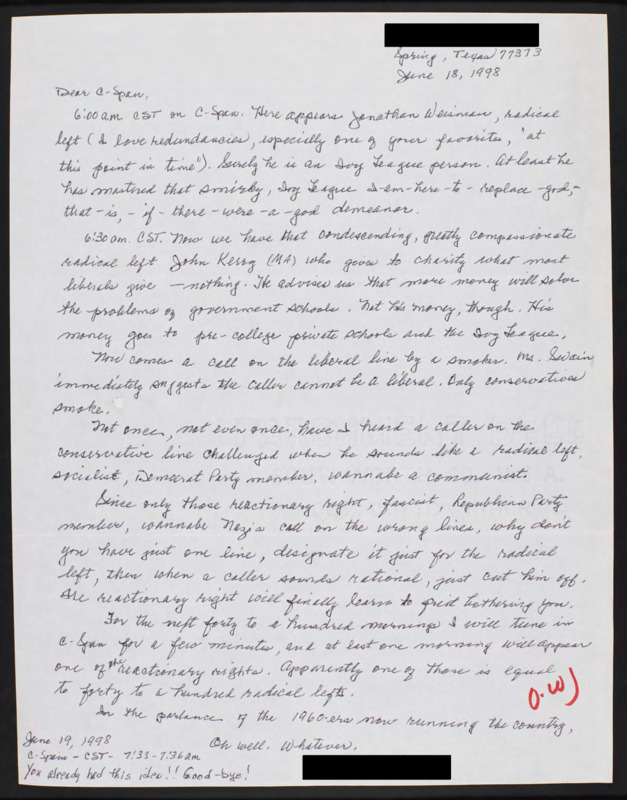 Spring, Texas 77373
June 18, 1998
Dear C-Span,
6:00 am CST on C-Span. Here appears Jonathan Weisman, radical
left (I love redundancies, especially one of your favorites, "at
this point in time"). Surely he is an Ivy League person. At least he
has mastered that smirky, Ivy League I-am-here-to-replace-god,-
that-is,-if-there-were-a-god demeanor.
6:30 am. CST. Now we have that condescending, compassionate
radical left John Kerry (MA) who gives to charity what most
liberals give — nothing. He advises us that more money will solve
the problems of government schools. Not his money, though. His
money goes to pre-college private schools and the Ivy League.
Now comes a call on the liberal line by a smoker. Ms. Swain
immediately suggests the caller cannot be a liberal. Only conservatives
smoke.
Not once, not even once, have I heard a caller on the
conservative line challenged when he sounds like a radical left,
socialist, Democrat Party member, wannabe a communist.
Since only those reactionary right, fascist, Republican Party
member, wannabe Nazis call on the wrong lines, why don't
you have just one line, designate it just for the radical
left, then when a caller sounds rational, just cut him off.
The reactionary right will finally learn to quit bothering you.
For the next forty to a hundred mornings I will tune in
C-Span for a few minutes, and at last one morning will appear
one of the reactionary rights. Apparently one of those is equal
to forty to a hundred radical lefts.
O.W)
In the parlance of the 1960-ers now running the country,
Oh well. Whatever.
June 19, 1998
C-Span - CST - 7:33-7:36am
You already had this idea!! Good-bye!